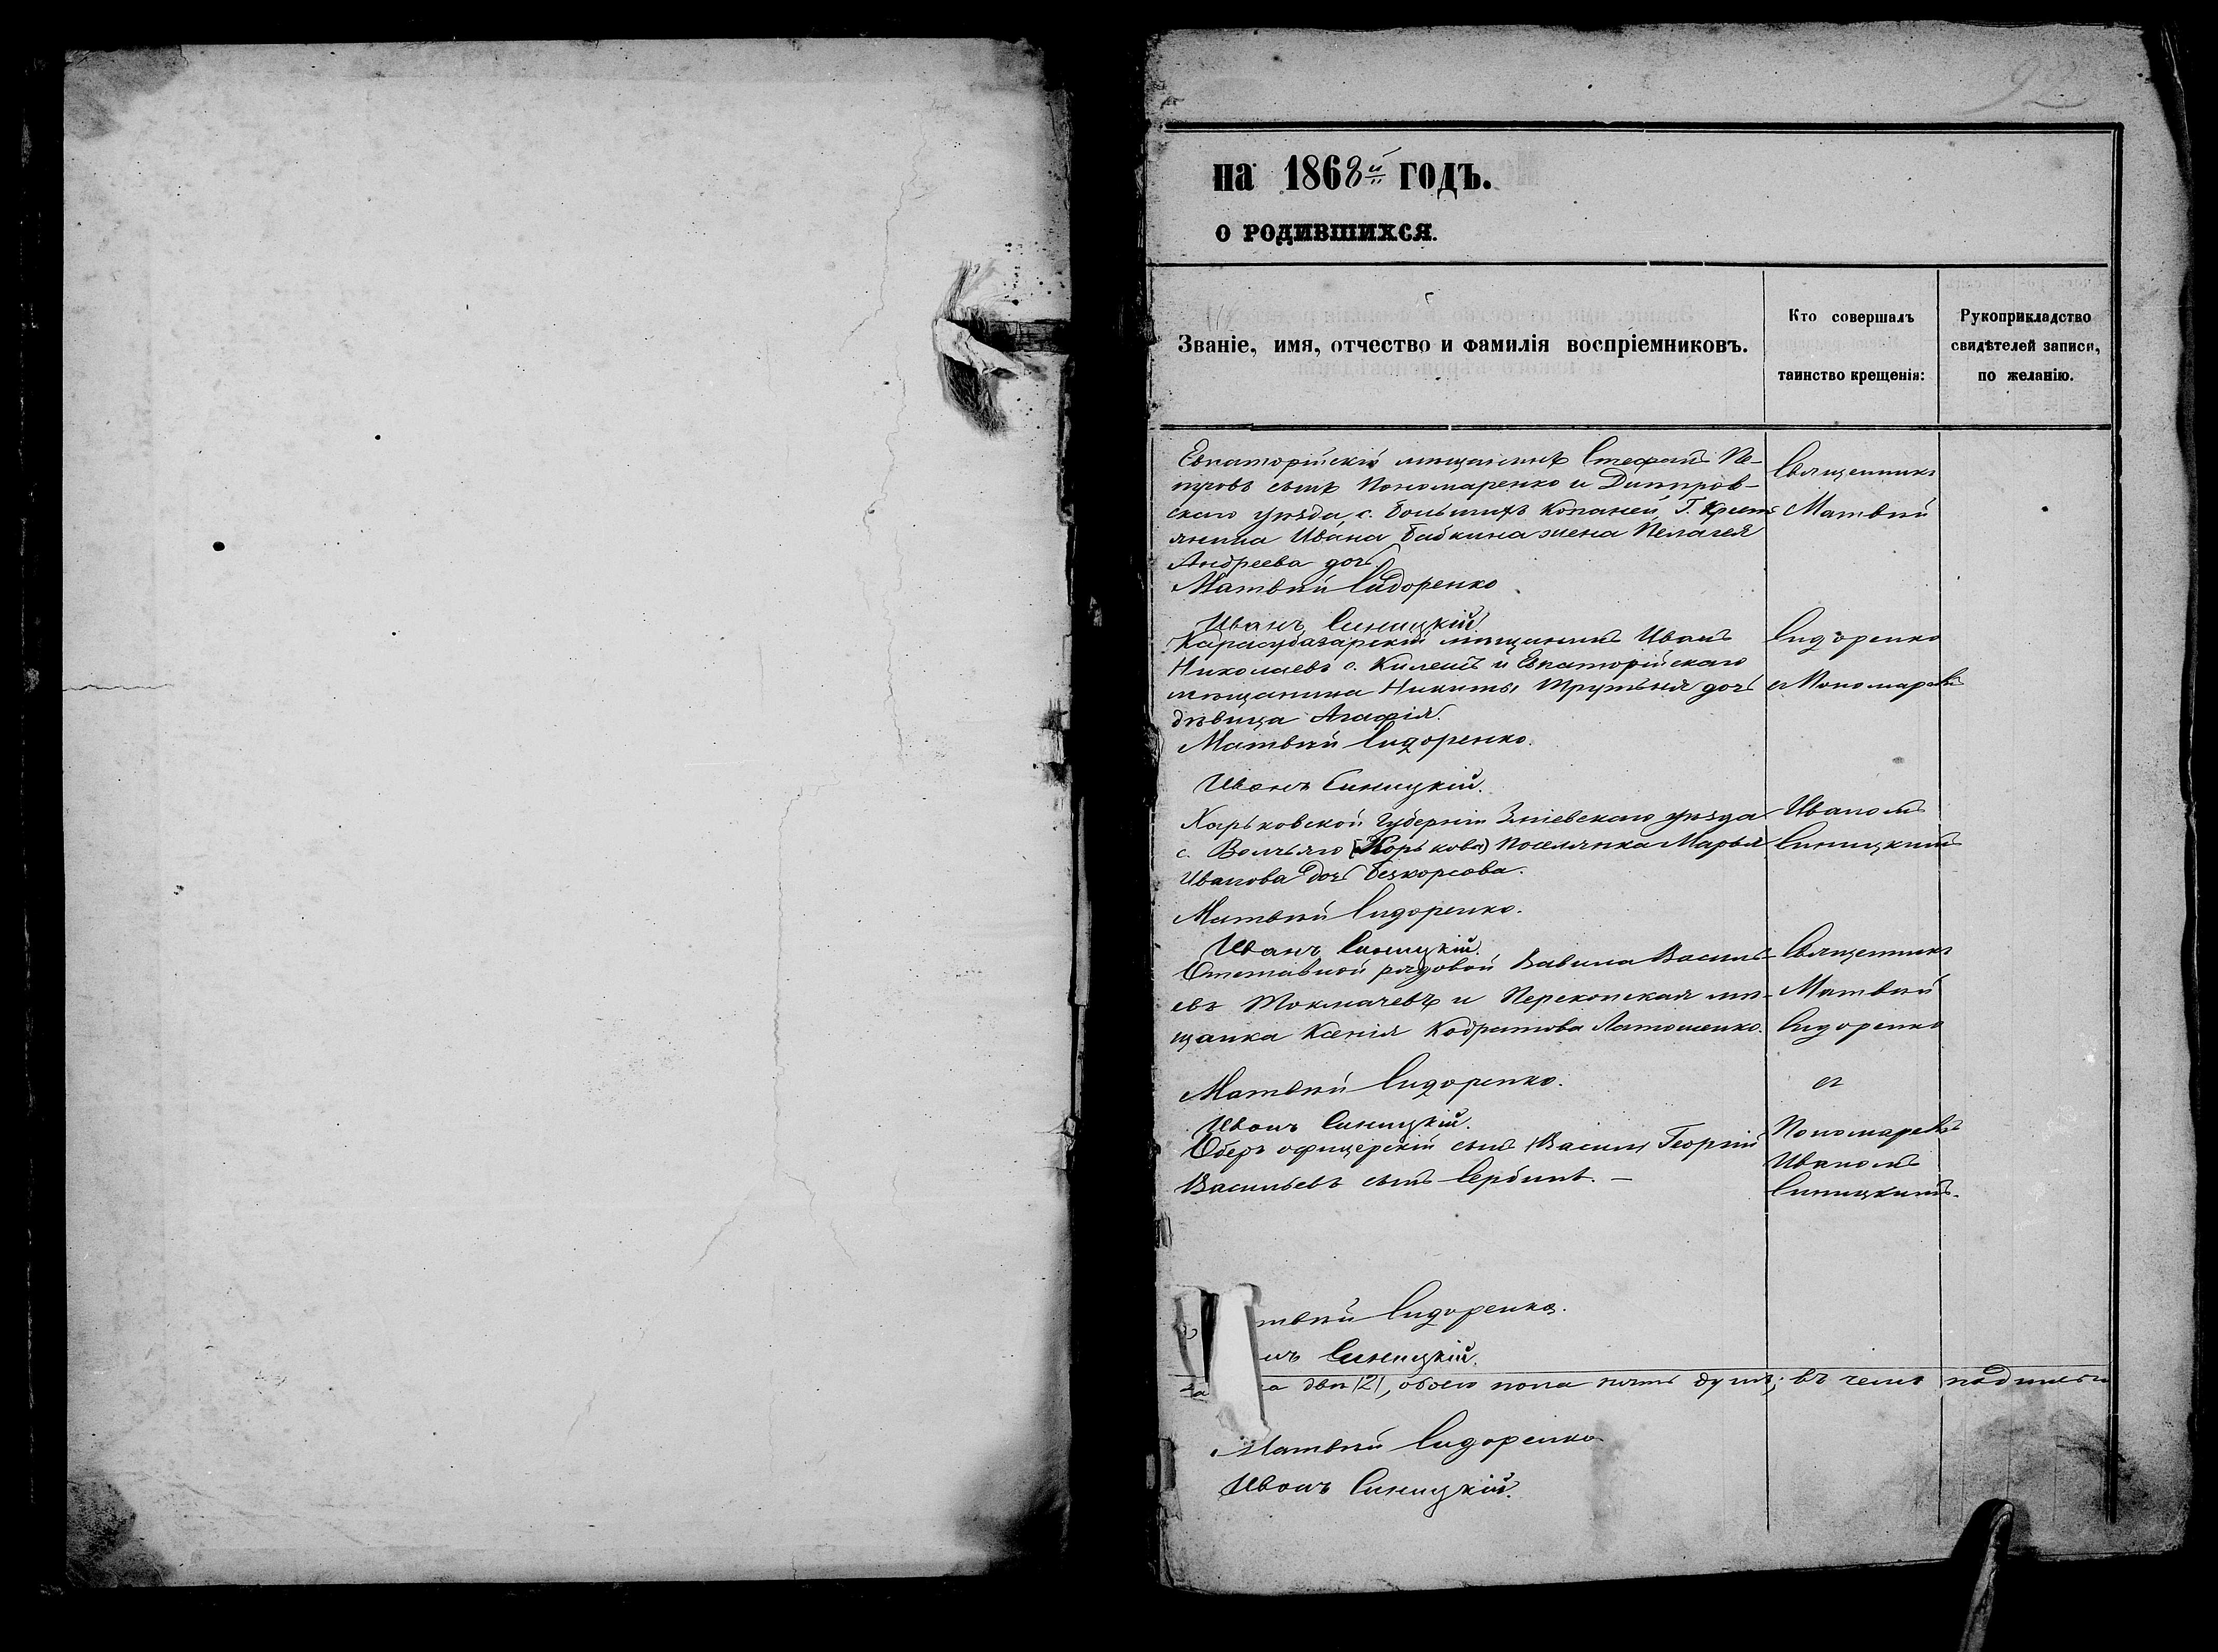 92
на 1868й годъ.
о родившихся.
Званіе, имя, отчество и фамилія воспріемниковъ.
Кто совершалъ
таинство крещенія:
Рукоприкладство
свидѣтелей записи,
по желанію.
Евпаторійскій мѣщанинъ Стефанъ Пе-
тровъ сынъ Пономаренко и Днипров-
скаго уѣзда, с. Большихъ Копаней, Г. Крест
янина Ивана Бабкина жена Пелагея
Андреева дочь
Матвѣй Сидоренко
Иванъ Синицкій
Карасубазарскій мѣщанинъ Иванъ
Николаевъ с. и Евпаторійскаго
мѣщанина Никиты Трутьня дочь
дѣвица Агафія.
Матвѣй Сидоренко.
Иванъ Синицкій.
Харьковской Губерніи Зміевскаго уѣзда
с. Волчьяго (Корькова) поселянка Марья
Иванова дочь
Матвѣй Сидоренко.
Иванъ Синицкій.
Отставной рядовой Вавила Василь-
евъ Токмачевъ и Перекопская мѣ-
щанка Ксенія Кодратова Латошенко.
Матвѣй Сидоренко.
Иванъ Синицкій.
Оберъ офицерскій сынъ (Васил) Георгій
Васильевъ сынъ Сербинъ. –
твѣй Сидоренко.
нъ Синицкій.
два (2), обоего пола пять душъ; въ чемъ
Матвѣй Сидоренко
Иванъ Синицкій.
Священникъ
Матвѣй
Сидоренко
съ Пономаремъ
Иваномъ
Синицкимъ
Священникъ
Матвѣй
Сидоренко
съ
Пономаремъ
Иваномъ
Синицкимъ.